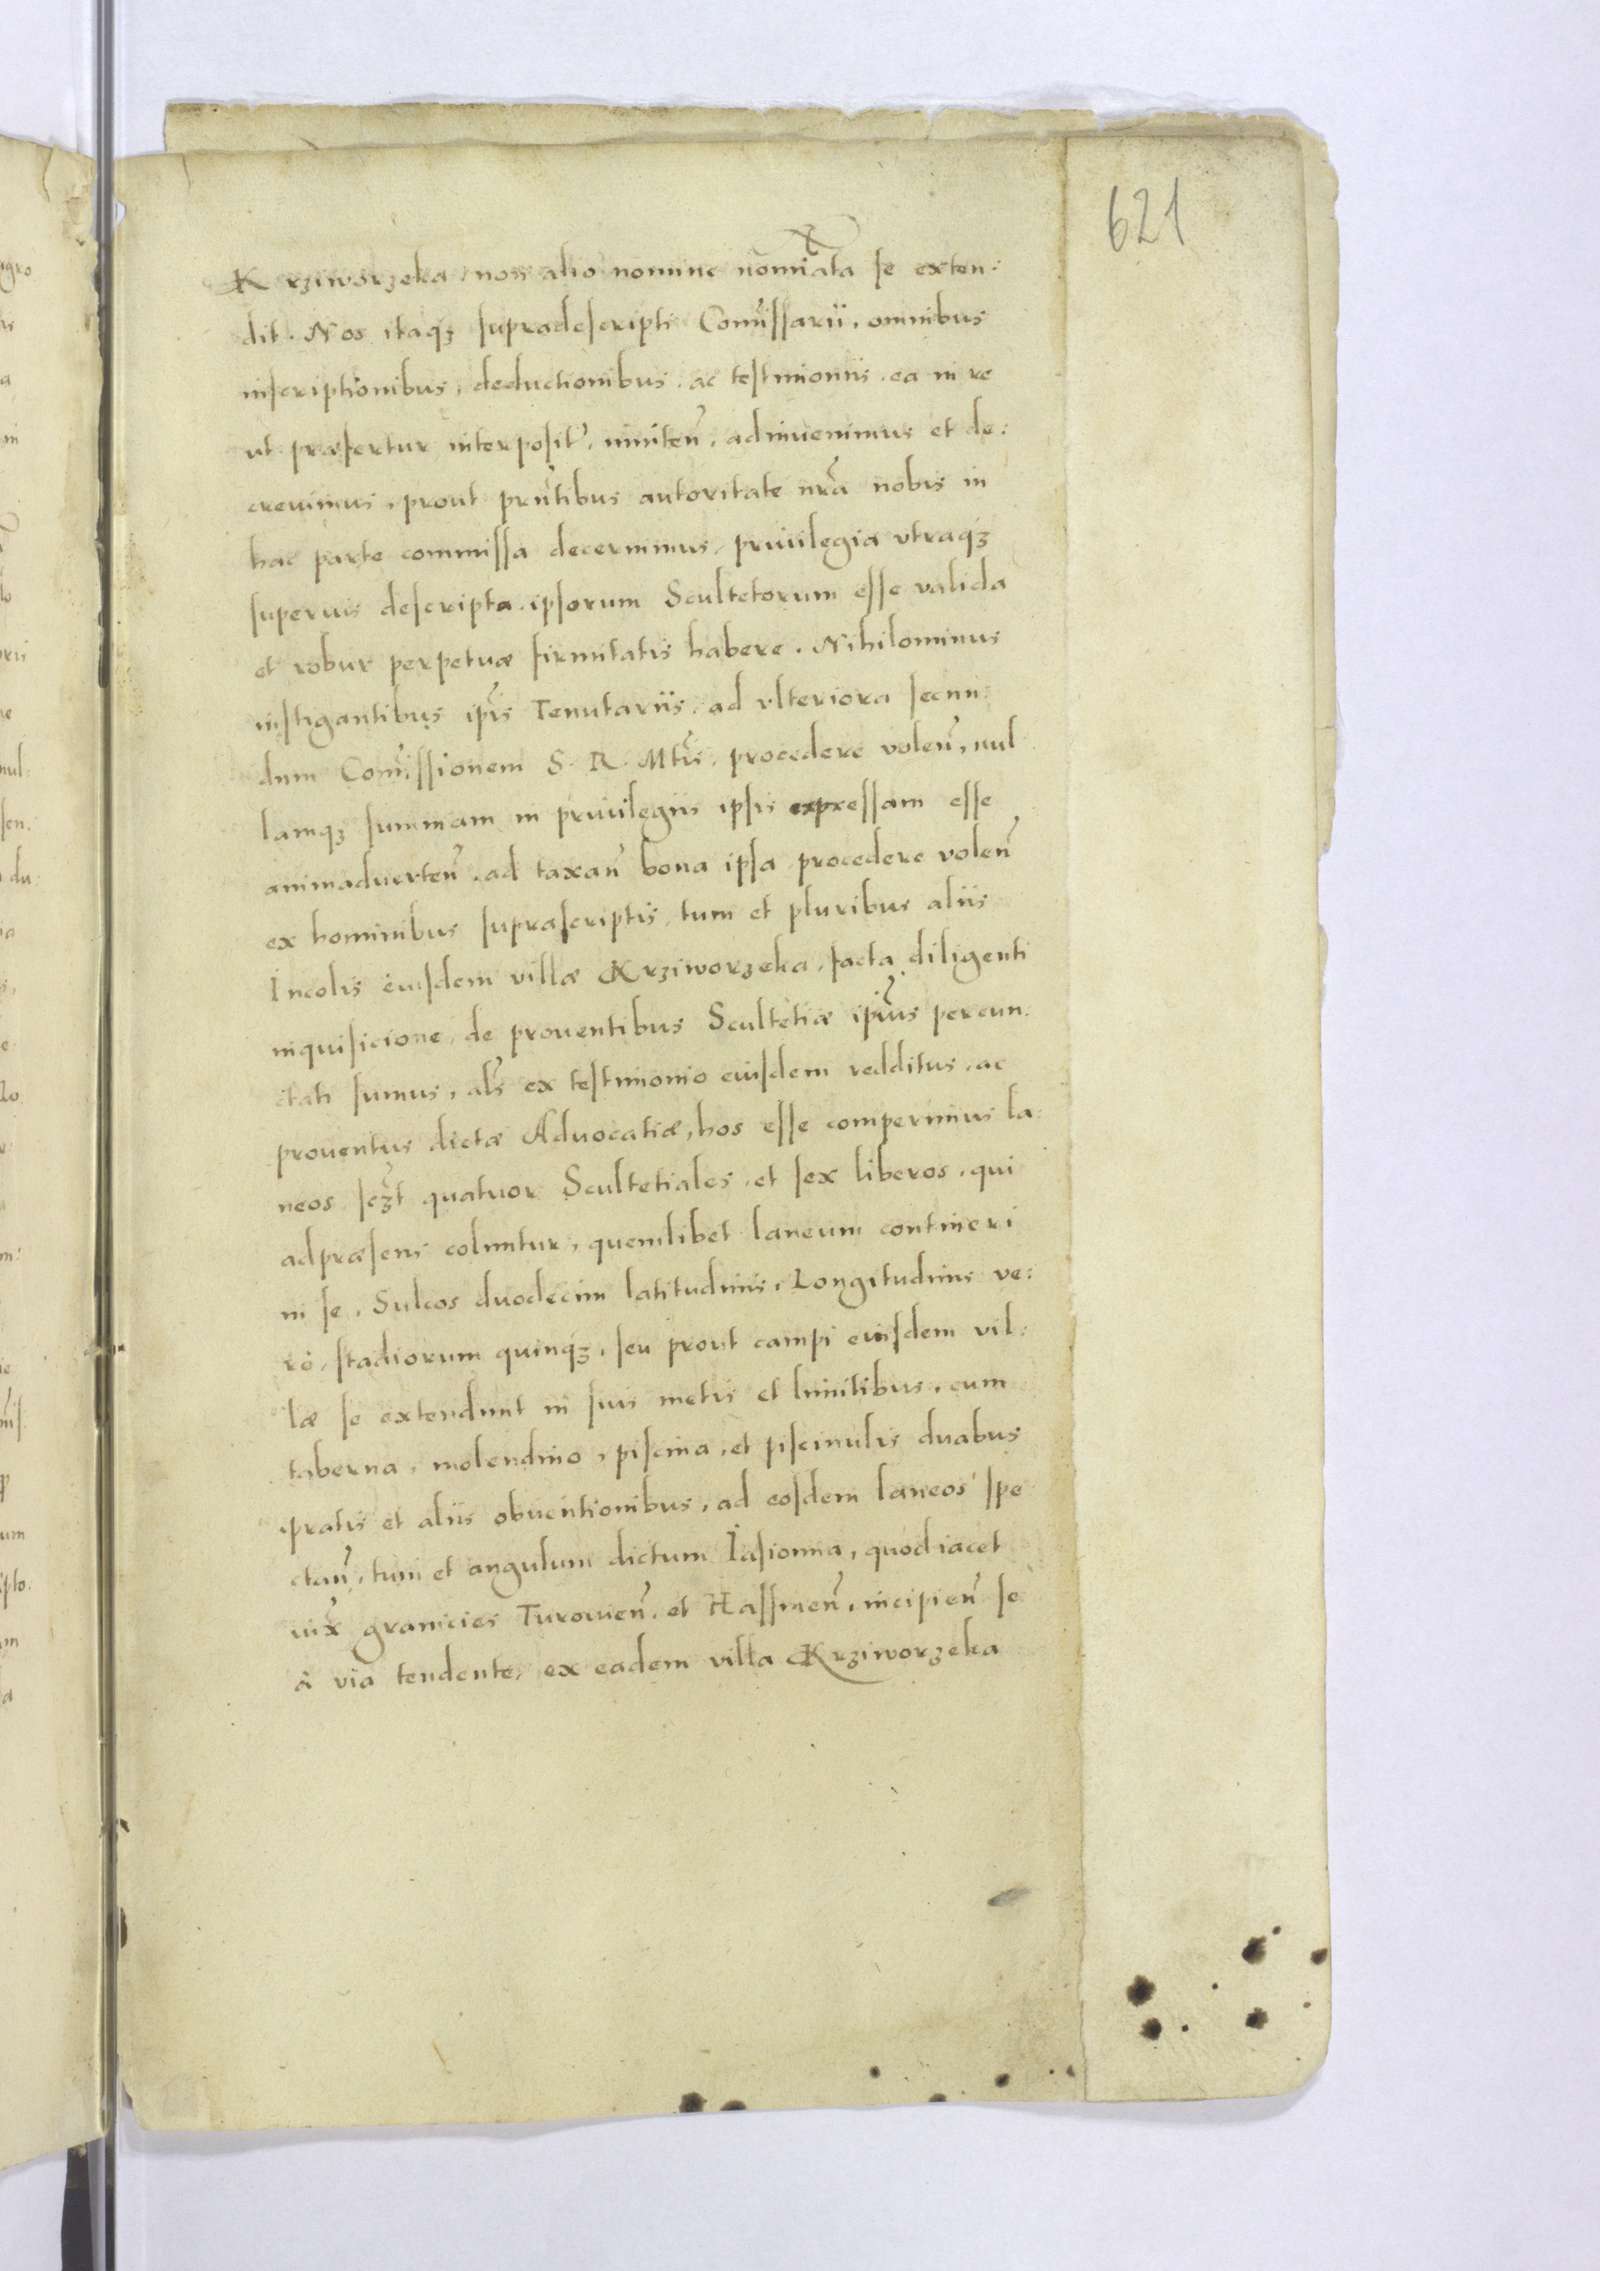 621
Krziworzeka, non alio nomine nomiata se exten:
dit. Nos itaqȝ supradescripti Comissarii, omnibus
inscriptionibus, deductionibus, ac testimoniis, ea in re
ut præfertur interposit, initen̄, adinuenimus et de:
creuimus, prout pn̄tibus autoritate nr̄a nobis in
hac parte commissa decernimus, priuilegia vtraqȝ
superius descripta, ipsorum Scultetorum esse valida
et robur perpetuæ firmitatis habere. Nihilominus
instigantibus ip̄is Tenutariis, ad vlteriora secun:
dum Comissionem S. R. Mtis, procedere volen̄, nul
lamqȝ summam in priuilegiis ipsis expressam esse
animaduerten̄, ad taxan̄ bona ipsa procedere volen̄
ex hominibus suprascriptis, tum et pluribus aliis
Incolis eiusdem villæ Krziworzeka, facta diligenti
inquisicione, de prouentibus Scultetiæ ip̄ius percun:
ctati sumus, als ex testimonio eiusdem redditus, ac
prouentus dictæ Aduocatiæ, hos esse comperimus la:
neos sczt quatuor Scultetiales, et sex liberos, qui
adpræsens coluntur, quemlibet laneum contineri
in se, Sulcos duodecim latitudinis, Longitudinis ve:
rò, stadiorum quinqȝ, seu prout campi eiusdem vil:
læ se extendunt in suis metis et limitibus, cum
taberna, molendino, piscina, et piscinulis duabus
pratis et aliis obuentionibus, ad eosdem laneos spe
ctan̄, tum et angulum dictum Iasionna, quod iacet
iux̄ granicies Turouien̄, et Hassinen̄, incipien̄ se
à via tendente, ex eadem villa Krziworzeka